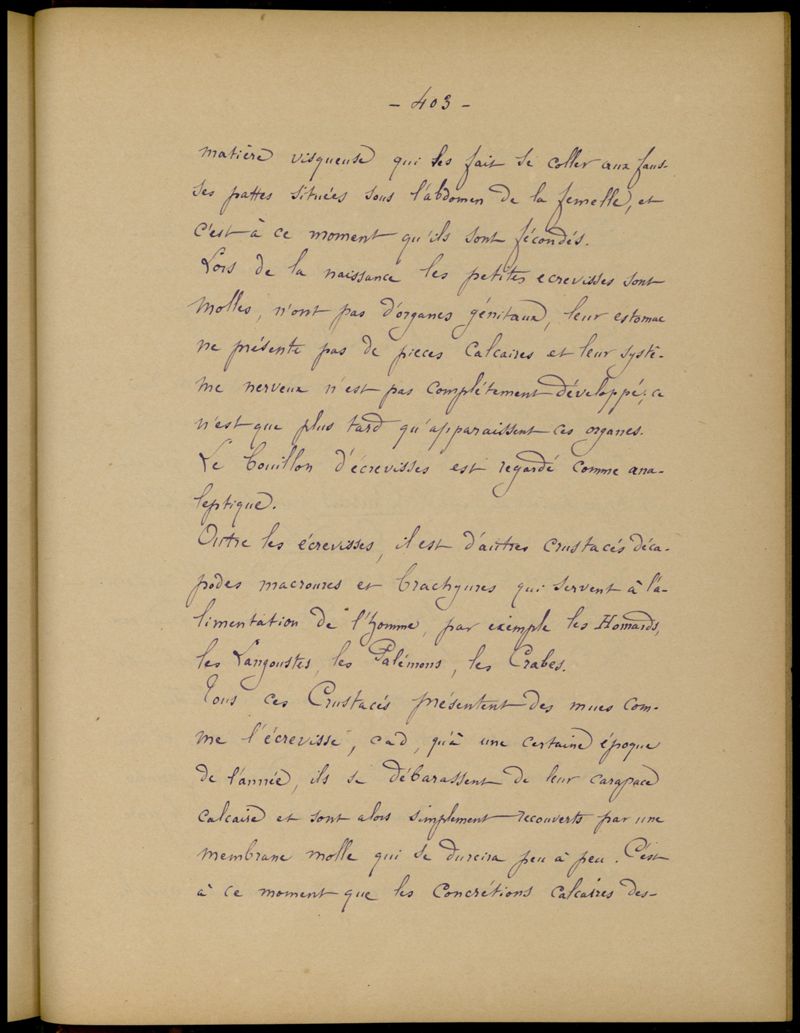 - 403 -
matière visqueuse qui les fait se coller aux faus-
ses pattes situées sous l'abdomen de la femelle, et
c'est à ce moment qu'ils sont fécondés.
Lors de la naissance les petites écrevisses sont
molles, n'ont pas d'organes génitaux, leur estomac
ne présente pas de pièces calcaires et leur systè-
me nerveux n'est pas complètement développé; ce
n'est que plus tard qu'apparaissent ces organes.
Le bouillon d'écrevisses est regardé comme ana-
leptique.
Outre les écrevisses, il est d'autres crustacés déca-
podes macroures et brachyures qui servent à l'a-
limentation de l'homme, par exemple les Homards,
les Langoustes, les Palémons, les Crabes.
Tous ces Crustacés présentent des mues com-
me l'écrevisse, càd, qu'à une certaine époque
de l'année, ils se débarassent de leur carapace
calcaire et sont alors simplement recouverts par une
membrane molle qui se durcira peu à peu. C'est
à ce moment que les concrétions calcaires des-